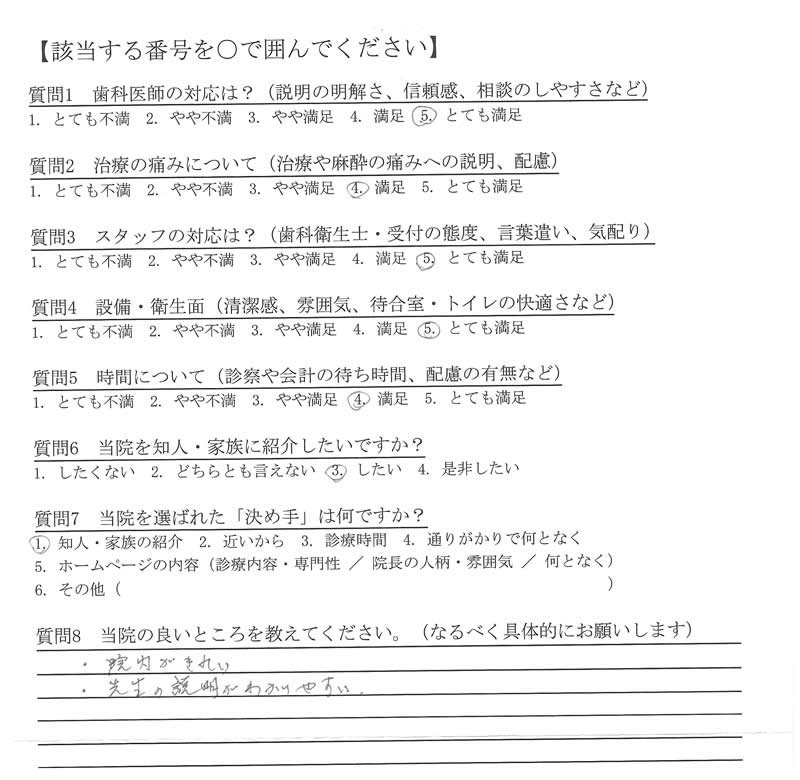 【該当する番号を○で囲んでください】
質問1 歯科医師の対応は?(説明の明解さ、信頼感、相談のしやすさなど)
1. とても不満 2. やや不満 3. やや満足 4. 満足 5. とても満足
質問2 治療の痛みについて(治療や麻酔の痛みへの説明、配慮)
1. とても不満 2. やや不満 3. やや満足 4. 満足 5. とても満足
質問3 スタッフの対応は?(歯科衛生士・受付の態度、言葉遣い、気配り)
1. とても不満 2. やや不満 3. やや満足 4. 満足 5. とても満足
質問4 設備・衛生面(清潔感、雰囲気、待合室・トイレの快適さなど)
1. とても不満 2. やや不満 3. やや満足 4. 満足 5. とても満足
質問5 時間について(診察や会計の待ち時間、配慮の有無など)
1. とても不満 2. やや不満 3. やや満足 4. 満足 5. とても満足
質問6 当院を知人・家族に紹介したいですか?
1. したくない 2. どちらとも言えない 3. したい 4. 是非したい
質問7 当院を選ばれた「決め手」は何ですか?
1. 知人・家族の紹介 2. 近いから 3. 診療時間 4. 通りがかりで何となく
5. ホームページの内容(診療内容・専門性 / 院長の人柄・雰囲気 / 何となく)
6. その他( )
質問8 当院の良いところを教えてください。(なるべく具体的にお願いします)
・ 院内がきれい
・ 先生の説明がわかりやすい.